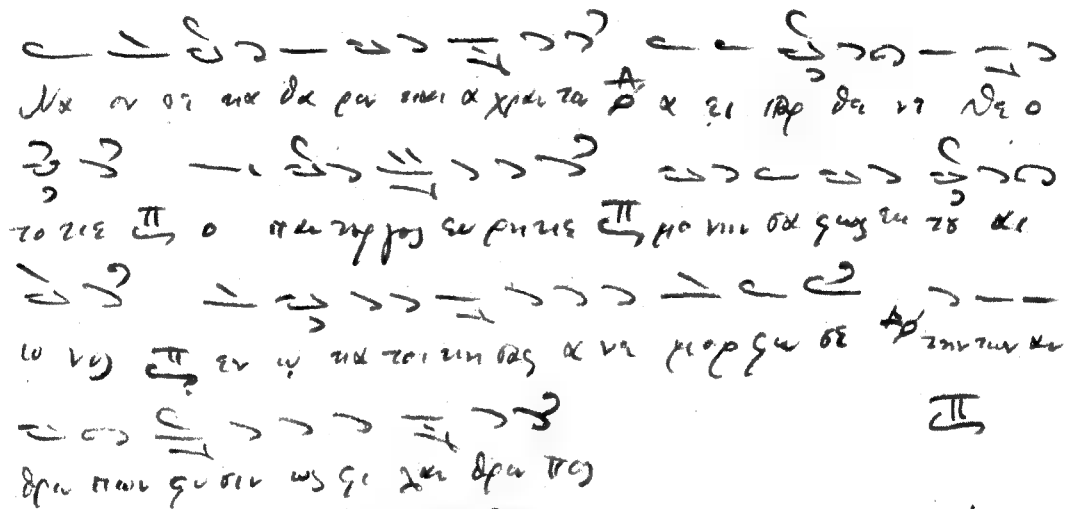 Να ον σε κα θα ρον και α χραν τον α ει παρ θε νε Θε ο
το κε ο παν τουρ γος ευ ρη κε μο νην σα φως εκ του αι
ω νος εν ω κα τοι κη σας α νε μορ φω σε την των αν
θρω πων φυ σιν ως φι λαν θρω πος